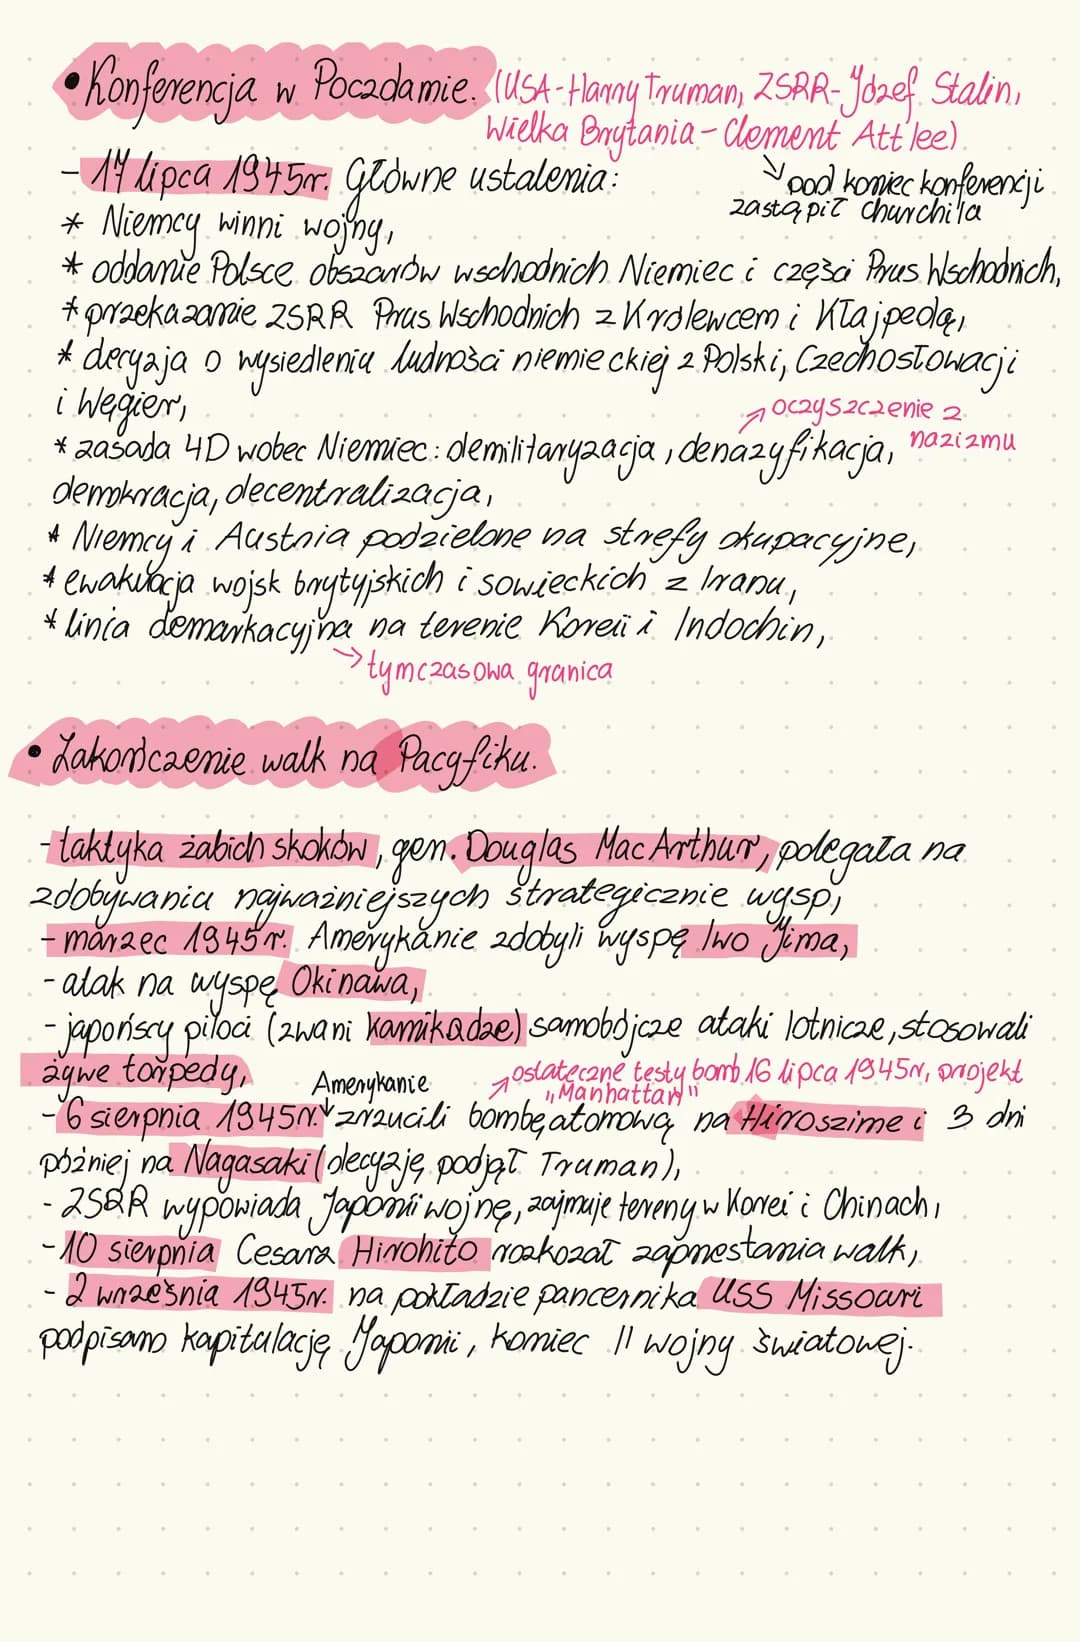 • Konferencja w Poczdamie. (USA-Harry Truman, ZSRR-Józef Stalin,
Wielka Brytania-Clement Attlee)
- 17 lipca 1945r. Główne ustalenia:
↘ pod koniec konferencji
zastąpił churchila
* Niemcy winni wojny,
* oddanie Polsce obszarów wschodnich Niemiec i części Prus Wschodnich,
* przekazanie ZSRR Prus Wschodnich z Królewcem i Kłajpedą,
* decyzja o wysiedleniu ludności niemieckiej z Polski, Czechosłowacji
i Węgier,
↗ oczyszczenie z
nazizmu
* zasada 4D wobec Niemiec: demilitaryzacja, denazyfikacja,
demokracja, decentralizacja,
* Niemcy i Austria podzielone na strefy okupacyjne,
* ewakuacja wojsk brytyjskich i sowieckich z Iranu,
* linia demarkacyjna na terenie Koreii i Indochin,
→ tymczasowa granica
• Zakończenie walk na Pacyfiku.
- taktyka żabich skoków, gen. Douglas MacArthur, polegała na
zdobywaniu najważniejszych strategicznie wysp,
- marzec 1945r. Amerykanie zdobyli wyspę Iwo Jima,
- atak na wyspę Okinawa,
- japońscy piloci (zwani kamikadze) samobójcze ataki lotnicze, stosowali
żywe torpedy,
↗ ostateczne testy bomb 16 lipca 1945r, projekt
„Manhattan"
Amerykanie
- 6 sierpnia 1945r. ↓ zrzucili bombę atomową na Hiroszime i 3 dni
później na Nagasaki (decyzję podjął Truman),
- ZSRR wypowiada Japonii wojnę, zajmuje tereny w Korei i Chinach,
- 10 sierpnia Cesarz Hirohito rozkozał zaprzestania walk,
- 2 września 1945r. na pokładzie pancernika USS Missouri
podpisano kapitulację Japonii, koniec II wojny światowej.